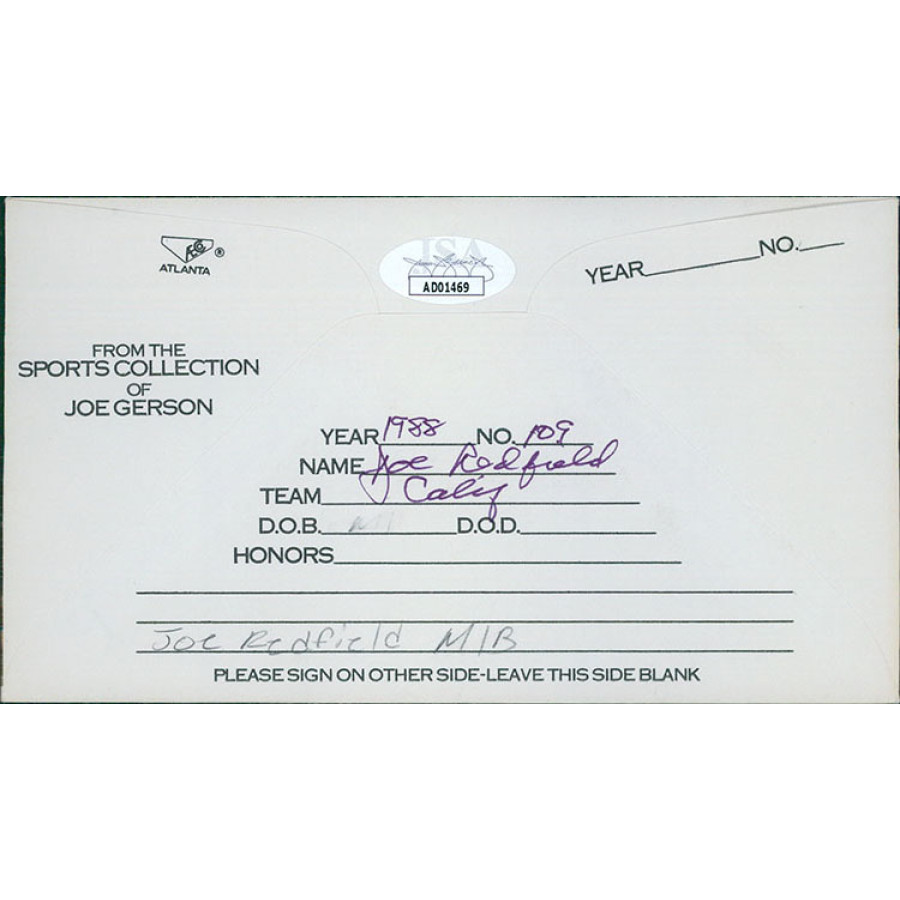 ATLANTA
®
JSA
AD01469
YEAR NO.
FROM THE
SPORTS COLLECTION
OF
JOE GERSON
YEAR 1988 NO. 109
NAME Joe Redfield
TEAM Calif
D.O.B. M D.O.D.
HONORS
Joe Redfield M/B
PLEASE SIGN ON OTHER SIDE-LEAVE THIS SIDE BLANK